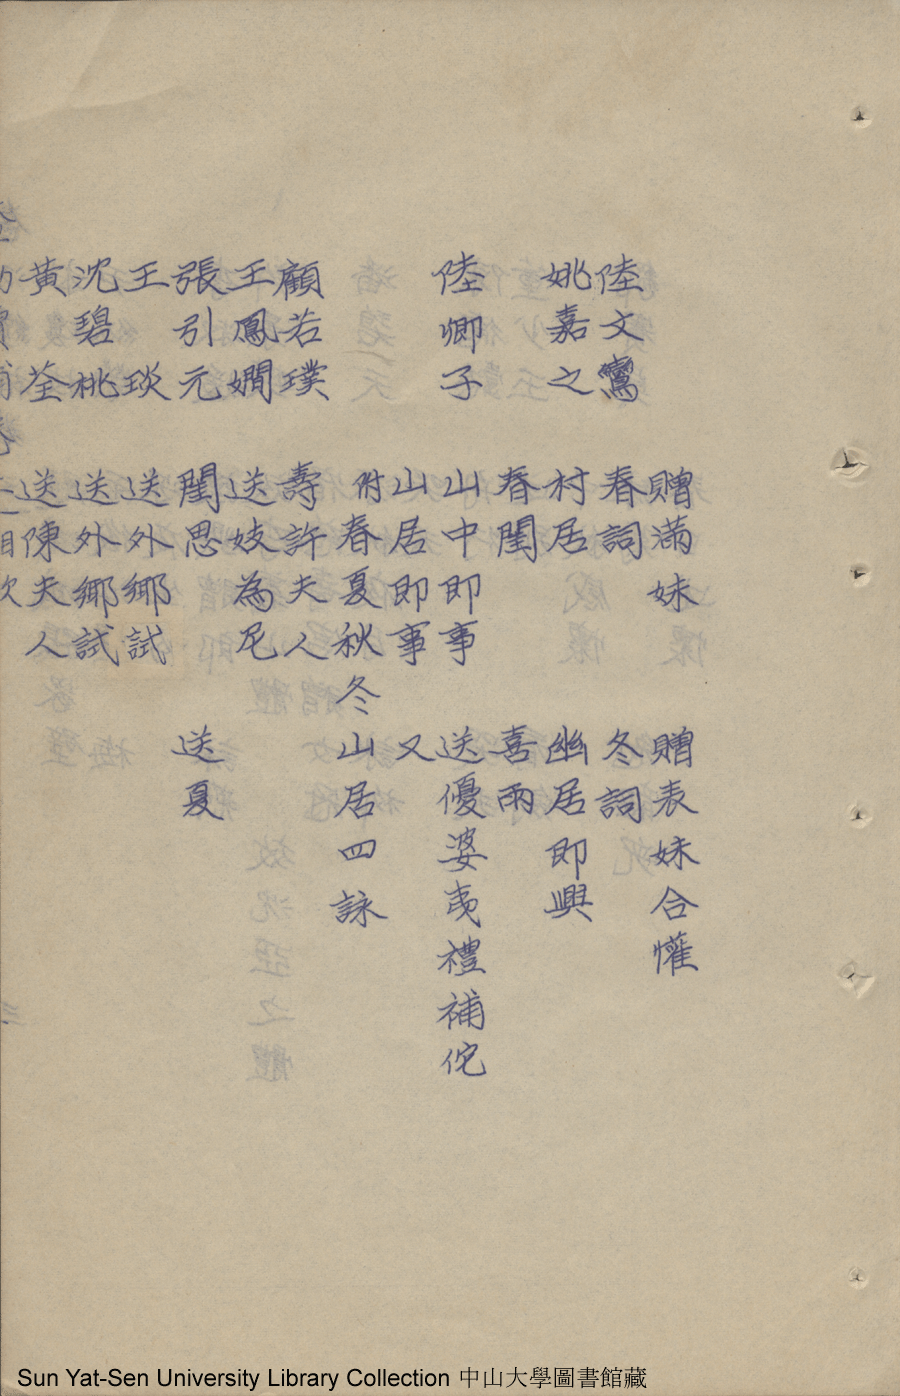 贈滿妹 贈表妹合懽
陸文鸞 春詞 冬詞
姚嘉之 村居 幽居即興
春閨 喜雨
陸卿子 山中即事 送優婆夷禮補佗
山居即事 又
附春夏秋冬山居四詠
顧若璞 壽許夫人
王鳳嫻 送妓為尼
張引元 閨思 送夏
王琰 送外鄉試
沈碧桃 送外鄉試
黃荃 送陳夫人
Sun Yat-Sen University Library Collection 中山大學圖書館藏